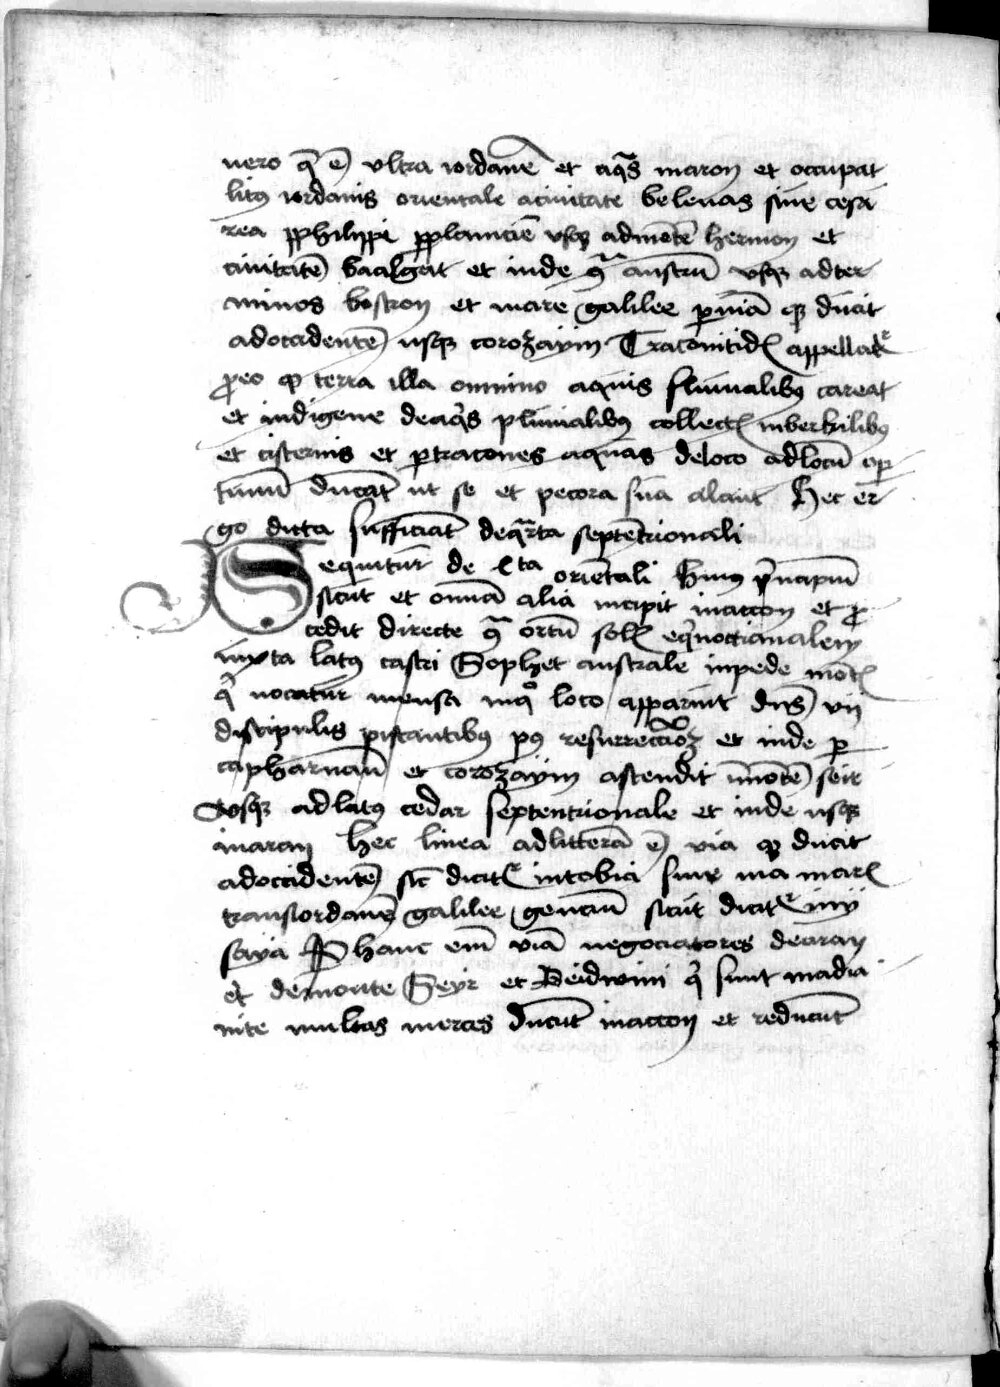 vero q̄ ē vltra iordanē et aq̄s maron et occupat
litꝰ iordanis orientale aciuitate belenas siue cesa
rea pphilippi p planiciē vsqꝫ admōtē hermon et
ciuitatē baalgat et inde ꝯͣ austrū vsqꝫ adter
minos bostron et mare galilee p viā q̄ ducit
adoccidentē vsqꝫ coroꝫaym Traconitidꝭ appellatᷣ
ꝓeo qꝫ terra illa omnino aquis fluuialibꝰ careat
et indigene deaq̄s pluuialibꝰ collectꝭ
et cisternis et p tracones aquas deloco adlocū opꝑ
tunū ducāt ut se et pecora sua alant Hec er
go dicta sufficiāt deq̄rta septētrionali
Sequitur de orientali Huiꝰ p̄ncipiū
sicut et omniū alia incipit inaccon et ꝓ
cedit directe ꝯͣ ortū solꝭ eq̄noctianalem
iuxta latꝰ castri Sophet australe inpede mōtꝭ
q̄ vocatur mensa inq̊ loco apparuit dn̄s vij
discipulis piscantibꝰ pꝰ resurrectioꝫ et inde p
capharnaū et coroꝫaym ascendit ī mōtē seir
Vsqꝫ adlatꝰ cedar septentrionale et inde usqꝫ
inaran Hec linea adlitterā ē via q̄ ducit
adoccidentē sic̄ dicitᷣ intobia siue via marꝭ
transiordanē galilee gencium sicut dicitᷣ inij
saya P hanc eīm viā negociatores dearan
et demonte Seyr et Beidwini q̄ sunt madia
nite multas merces ducūt inaccon et reducūt